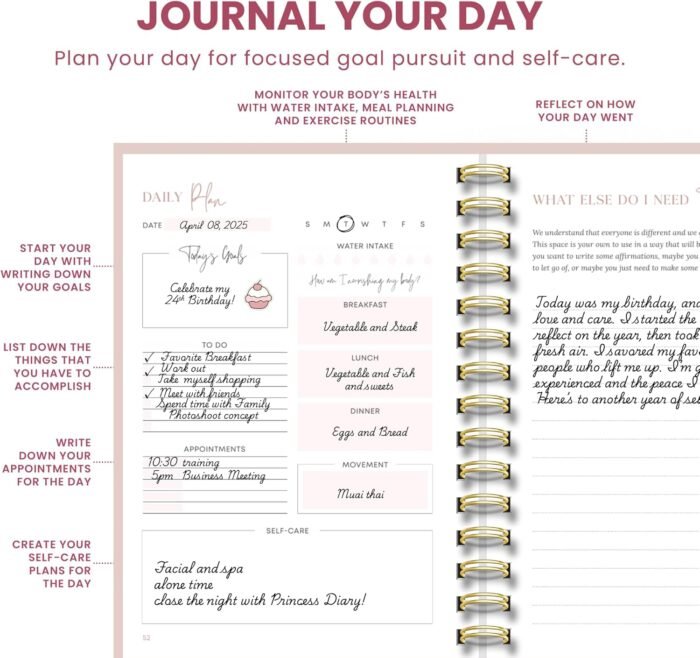 JOURNAL YOUR DAY
Plan your day for focused goal pursuit and self-care.
MONITOR YOUR BODY'S HEALTH
WITH WATER INTAKE, MEAL PLANNING
AND EXERCISE ROUTINES
REFLECT ON HOW
YOUR DAY WENT
START YOUR
DAY WITH
WRITING DOWN
YOUR GOALS
LIST DOWN THE
THINGS THAT
YOU HAVE TO
ACCOMPLISH
WRITE
DOWN YOUR
APPOINTMENTS
FOR THE DAY
CREATE YOUR
SELF-CARE
PLANS FOR
THE DAY
DAILY Plan
DATE April 08, 2025
S M T W T F S
Today's Goals
Celebrate my
24th Birthday!
TO DO
✓ Favorite Breakfast
✓ Work out
Take myself shopping
✓ Meet with friends
Spend time with Family
Photoshoot concept
APPOINTMENTS
10:30 training
5pm Business Meeting
WATER INTAKE
How am I nourishing my body?
BREAKFAST
Vegetable and Steak
LUNCH
Vegetable and Fish
and sweets
DINNER
Eggs and Bread
MOVEMENT
Muai thai
SELF-CARE
Facial and spa
alone time
close the night with Princess Diary!
52
WHAT ELSE DO I NEED
We understand that everyone is different and we
This space is your own to use in a way that will
you want to write some affirmations, maybe you
to let go of, or maybe you just need to make some
Today was my birthday, and
love and care. I started the
reflect on the year, then took
fresh air. I savored my
people who lift me up. I'm
experienced and the peace I
Here's to another year of